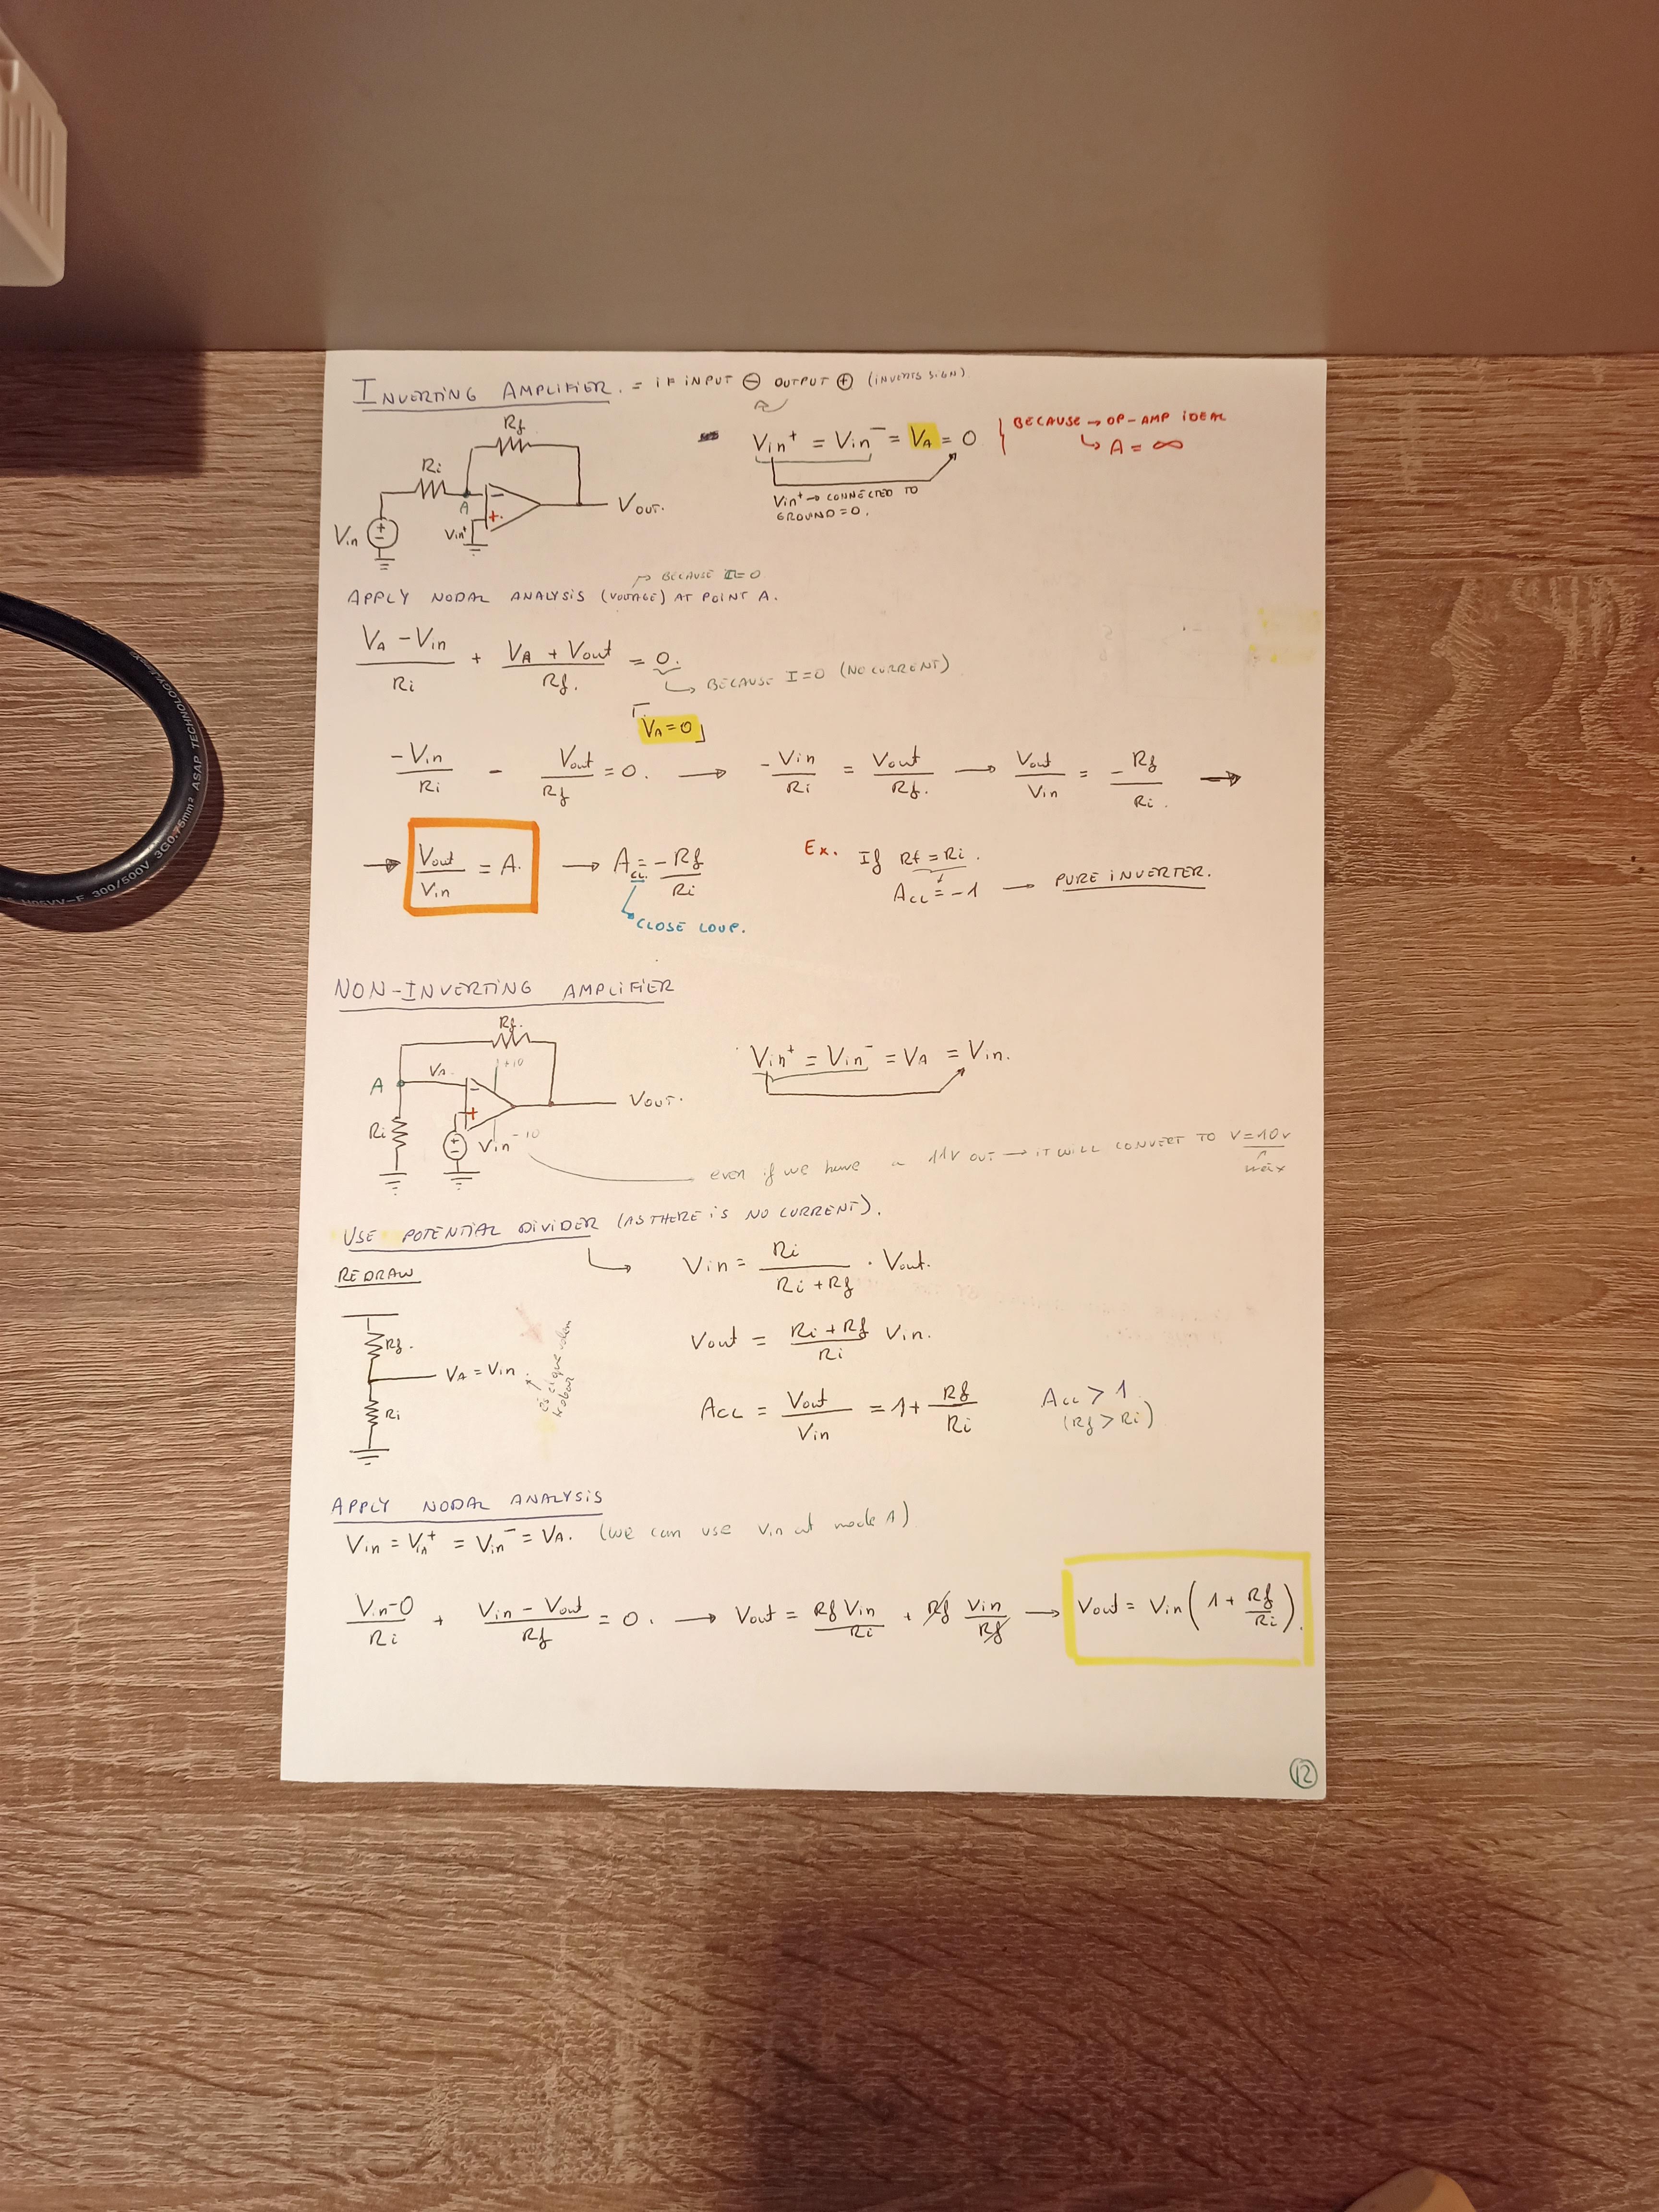 INVERTING AMPLIFIER. = IF INPUT ⊖ OUTPUT ⊕ (INVERTS SIGN)
Rf
Ri
A
-
+
Vin
Vin+
VOUT.
Vin+ = Vin- = VA = 0
Vin+ → CONNECTED TO
GROUND = 0.
BECAUSE → OP-AMP IDEAL
↳ A = ∞
↱ BECAUSE I=0
APPLY NODAL ANALYSIS (VOLTAGE) AT POINT A.
(VA - Vin)/Ri + (VA + Vout)/Rf. = 0.
↳ BECAUSE I=0 (NO CURRENT)
VA = 0
-Vin/Ri - Vout/Rf = 0. → -Vin/Ri = Vout/Rf. → Vout/Vin = -Rf/Ri. →
→ Vout/Vin = A. → ACL. = -Rf/Ri
CLOSE LOUP.
Ex. If Rf = Ri.
ACL = -1 → PURE INVERTER.
NON-INVERTING AMPLIFIER
Rf.
A
VA.
-
+10
+
VOUT.
Ri
Vin
-10
Vin+ = Vin- = VA = Vin.
even if we have a 11V OUT → IT WILL CONVERT TO V=10V
màx
USE POTENTIAL DIVIDER (AS THERE IS NO CURRENT).
Vin = Ri/(Ri + Rf) · Vout.
REDRAW
Rf.
VA = Vin
Ri
és el que volem
trobar
Vout = (Ri + Rf)/Ri Vin.
ACL = Vout/Vin = 1 + Rf/Ri
ACL > 1
(Rf > Ri)
APPLY NODAL ANALYSIS
Vin = VIA+ = Vin- = VA. (we can use Vin at node 1)
(Vin-0)/Ri + (Vin - Vout)/Rf = 0. → Vout = Rf Vin/Ri + Rf Vin/Rf → Vout = Vin(1 + Rf/Ri).
12
H05VV-F 300/500V 3G0.75mm² ASAP TECHNOLOGY